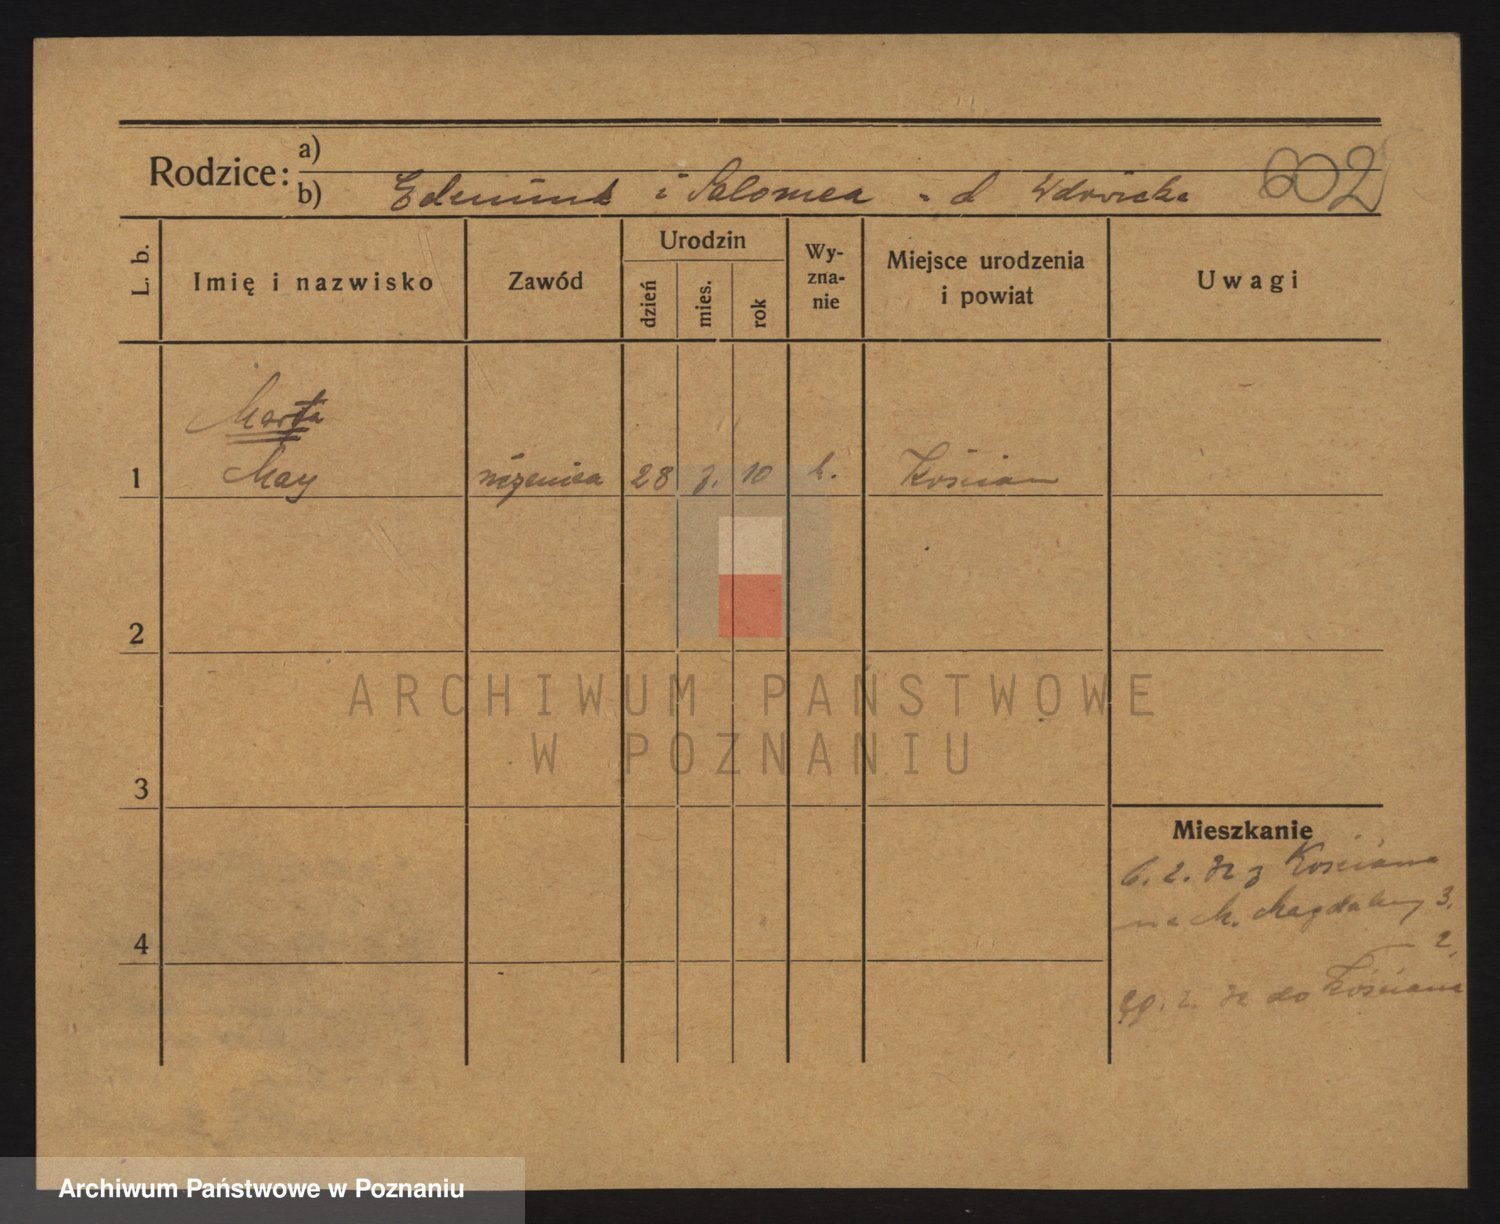 Rodzice: a)
b) Edmund i Salomea - d Wdowicka
602
L. b.
Imię i nazwisko
Zawód
Urodzin
dzień
mies.
rok
Wy-
zna-
nie
Miejsce urodzenia
i powiat
Uwagi
Marta
1 May 28 7. 10 k. Kościan
2
3
4
Mieszkanie
6. 2. 32 z Kościana
na M. Magdaleny 3.
2.
29. 2. 32 do Kościana
ARCHIWUM PAŃSTWOWE
W POZNANIU
Archiwum Państwowe w Poznaniu